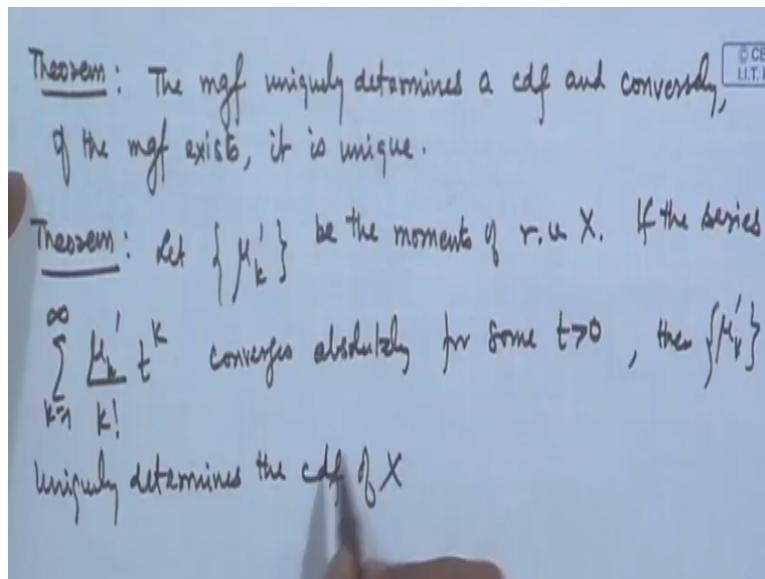 Theorem: The mgf uniquely determines a cdf and conversely,
if the mgf exists, it is unique.
Theorem: Let {μ'_k} be the moments of r.v. X. If the series
∑_{k=1}^{∞} μ'_k/k! t^k converges absolutely for some t>0, then {μ'_k}
uniquely determines the cdf of X
© CE
I.I.T.